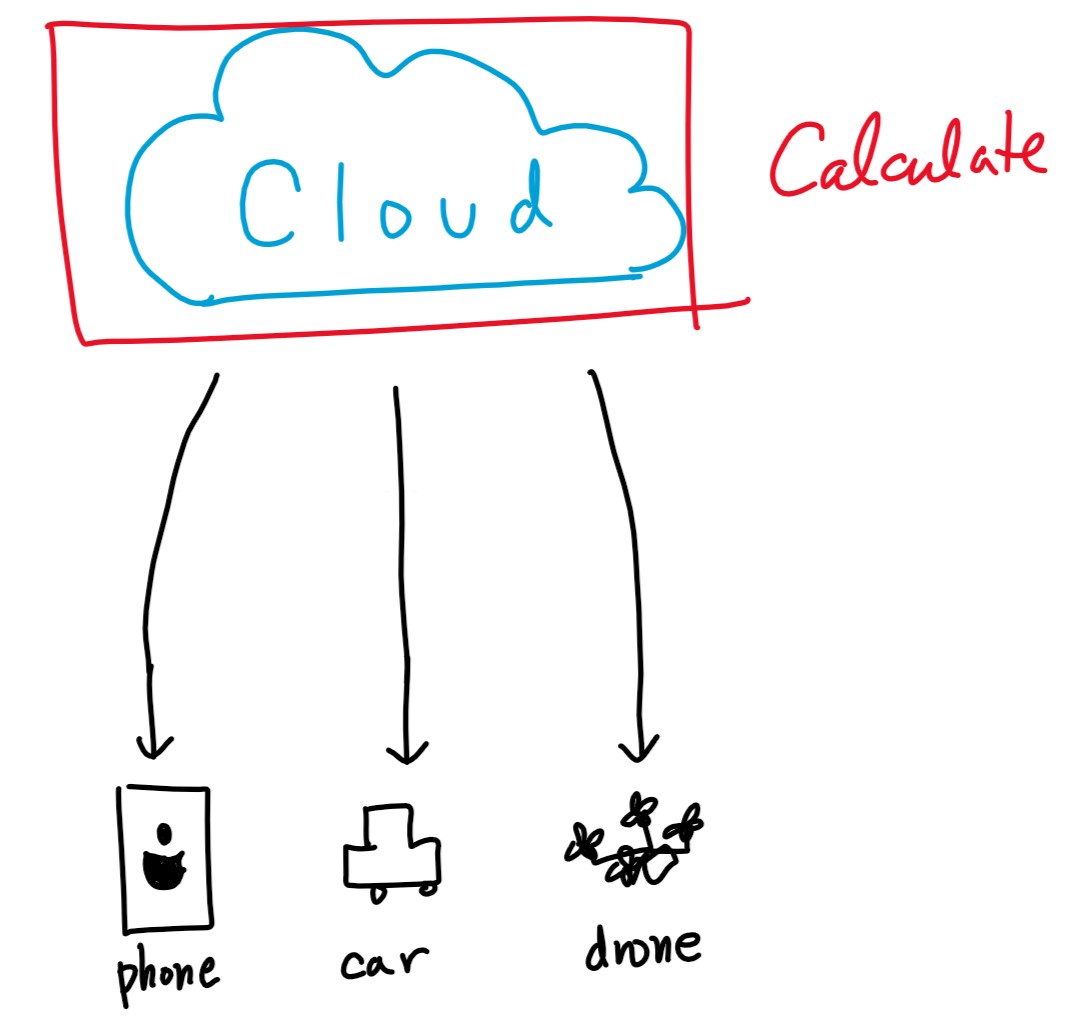 Cloud
Calculate
phone
car
drone